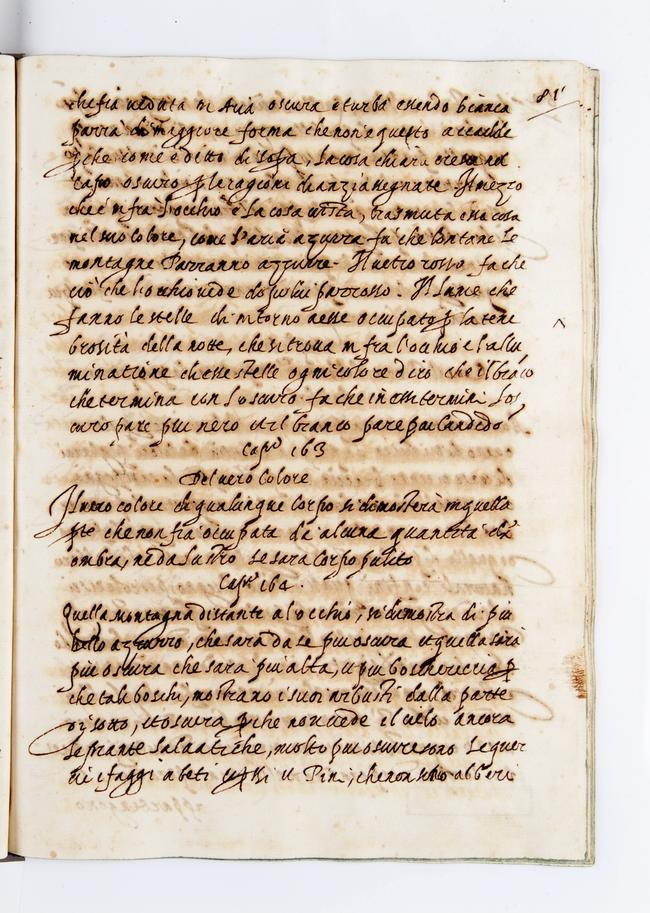 81
che sia veduta in Aria oscura e turba essendo bianca
parra di maggiore forma che non e questo accade
che come e ditto di sopra, la cosa chiara cresce nel
capo oscuro le ragioni dianzi asegnate. Il mezo
che e in fra l'occhio e la cosa vista, trasmuta essa cosa
nel suo colore, come l'aria azurra fa che lontane le
montagne Parranno azzurre. Il vetro rosso fa che
ciò che l'occhio vede dopo lui par rosso. Il lume che
fanno le stelle di intorno a esse occupato la tene
brosità della notte, che si trova in fra l'ochio e l'allu
minatione che esse stelle ogni colore dico che il bianco
che termina con l'oscuro fa che in essi termini Los
curo pare piu nero et il bianco pare piu Candido
Cap.º 163
Del vero Colore
Il vero colore di qualunque Corpo si dimosterà in quella
pte che non fia occupata da alcuna quantità di
ombra, ne da lustro se sara Corpo pulito
Cap.º 164.
Quella montagna distante a l'occhio, si dimostra di piu
bello azzurro, che sara da se piu oscura et quella sarà
piu oscura che sara piu alta, u piu boscherecia p
che tali boschi, mostrano i suoi arbusti dalla parte
di sotto, et oscura p che non vede el cielo ancora
le piante salvatiche, molto piu oscure sono le quer
cie i faggi abeti et Pini, che non sono alberi